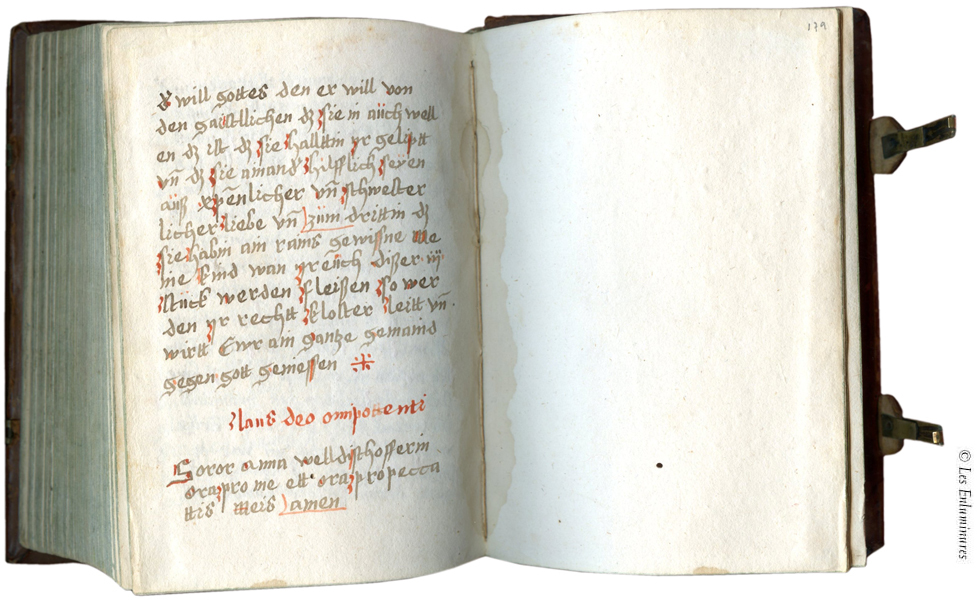 dz will gottes den er will von
den gaistlichen dz sie in aüch well
en dz ist dz sie halltin yr geliptt
vn̄ dz sie ainand hilfflich seyen
auß licher vn̄ schwester
licher liebe vn̄ züm drittin dz
sie habin ain rains gewissne
ine kind wan yr eüch dißer iij
stück werden fleißen so wer
den yr rechtt kloster leitt vn̄
wirtt Ewr ain gantze gemaind
gegen gott geniessen
laus deo omipottenti
Soror anna welldisthofferin
ora pro me ett ora pro pecca
ttis meis amen
179
© Les Enluminures